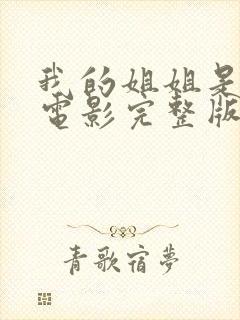 我的姐姐是
電影完整版
青歌宿夢